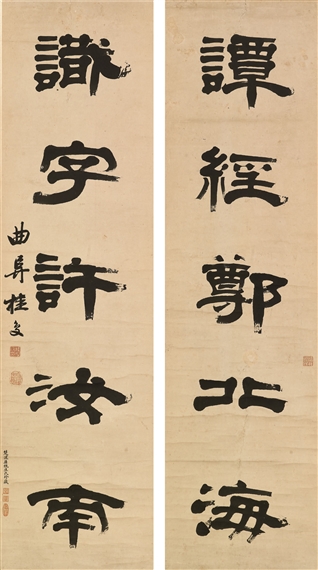 譚經鄭北海
識字許汝南
曲阜桂馥